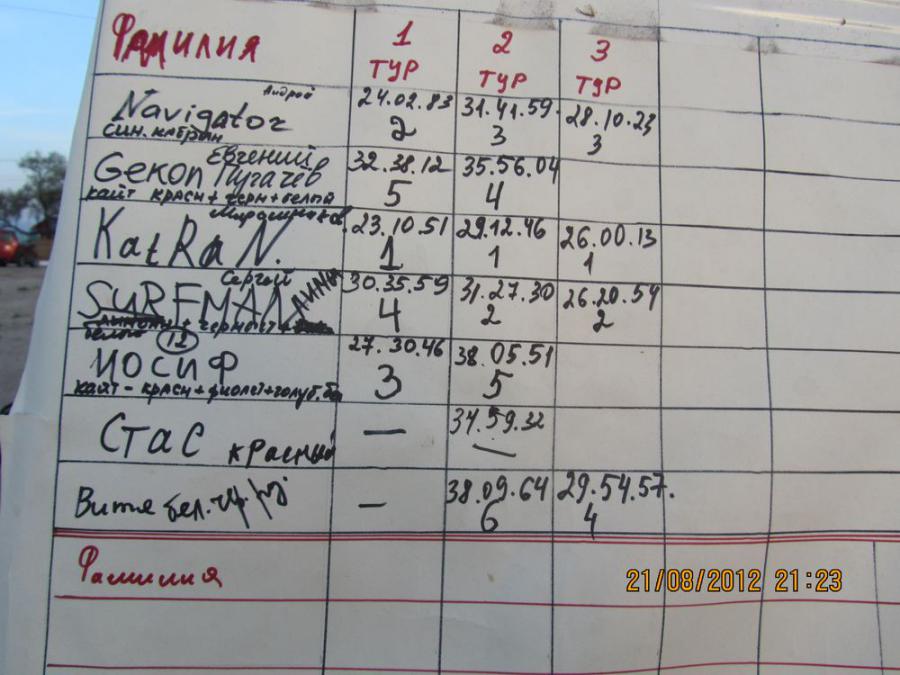 Фамилия
1 2 3
ТУР ТУР ТУР
Андрей
Navigator 24.02.83 31.41.59 28.10.23
син. катран 2 3 3
Евгений
Gекоn Пугачёв 32.38.12 35.56.04
кайт красн + черн + белый 5 4
KatRaN. 23.10.51 29.12.46 26.00.13
1 1 1
Сергей
SURFMAN 30.35.59 31.27.30 26.20.54
4 2 2
белый 12
ИОСИФ 27.30.46 38.05.51
кайт - красн + фиолет + голуб. 3 5
Стас красный — 34.59.32
—
Витя бел. — 38.09.64 29.54.57.
6 4
Фамилия
21/08/2012 21:23